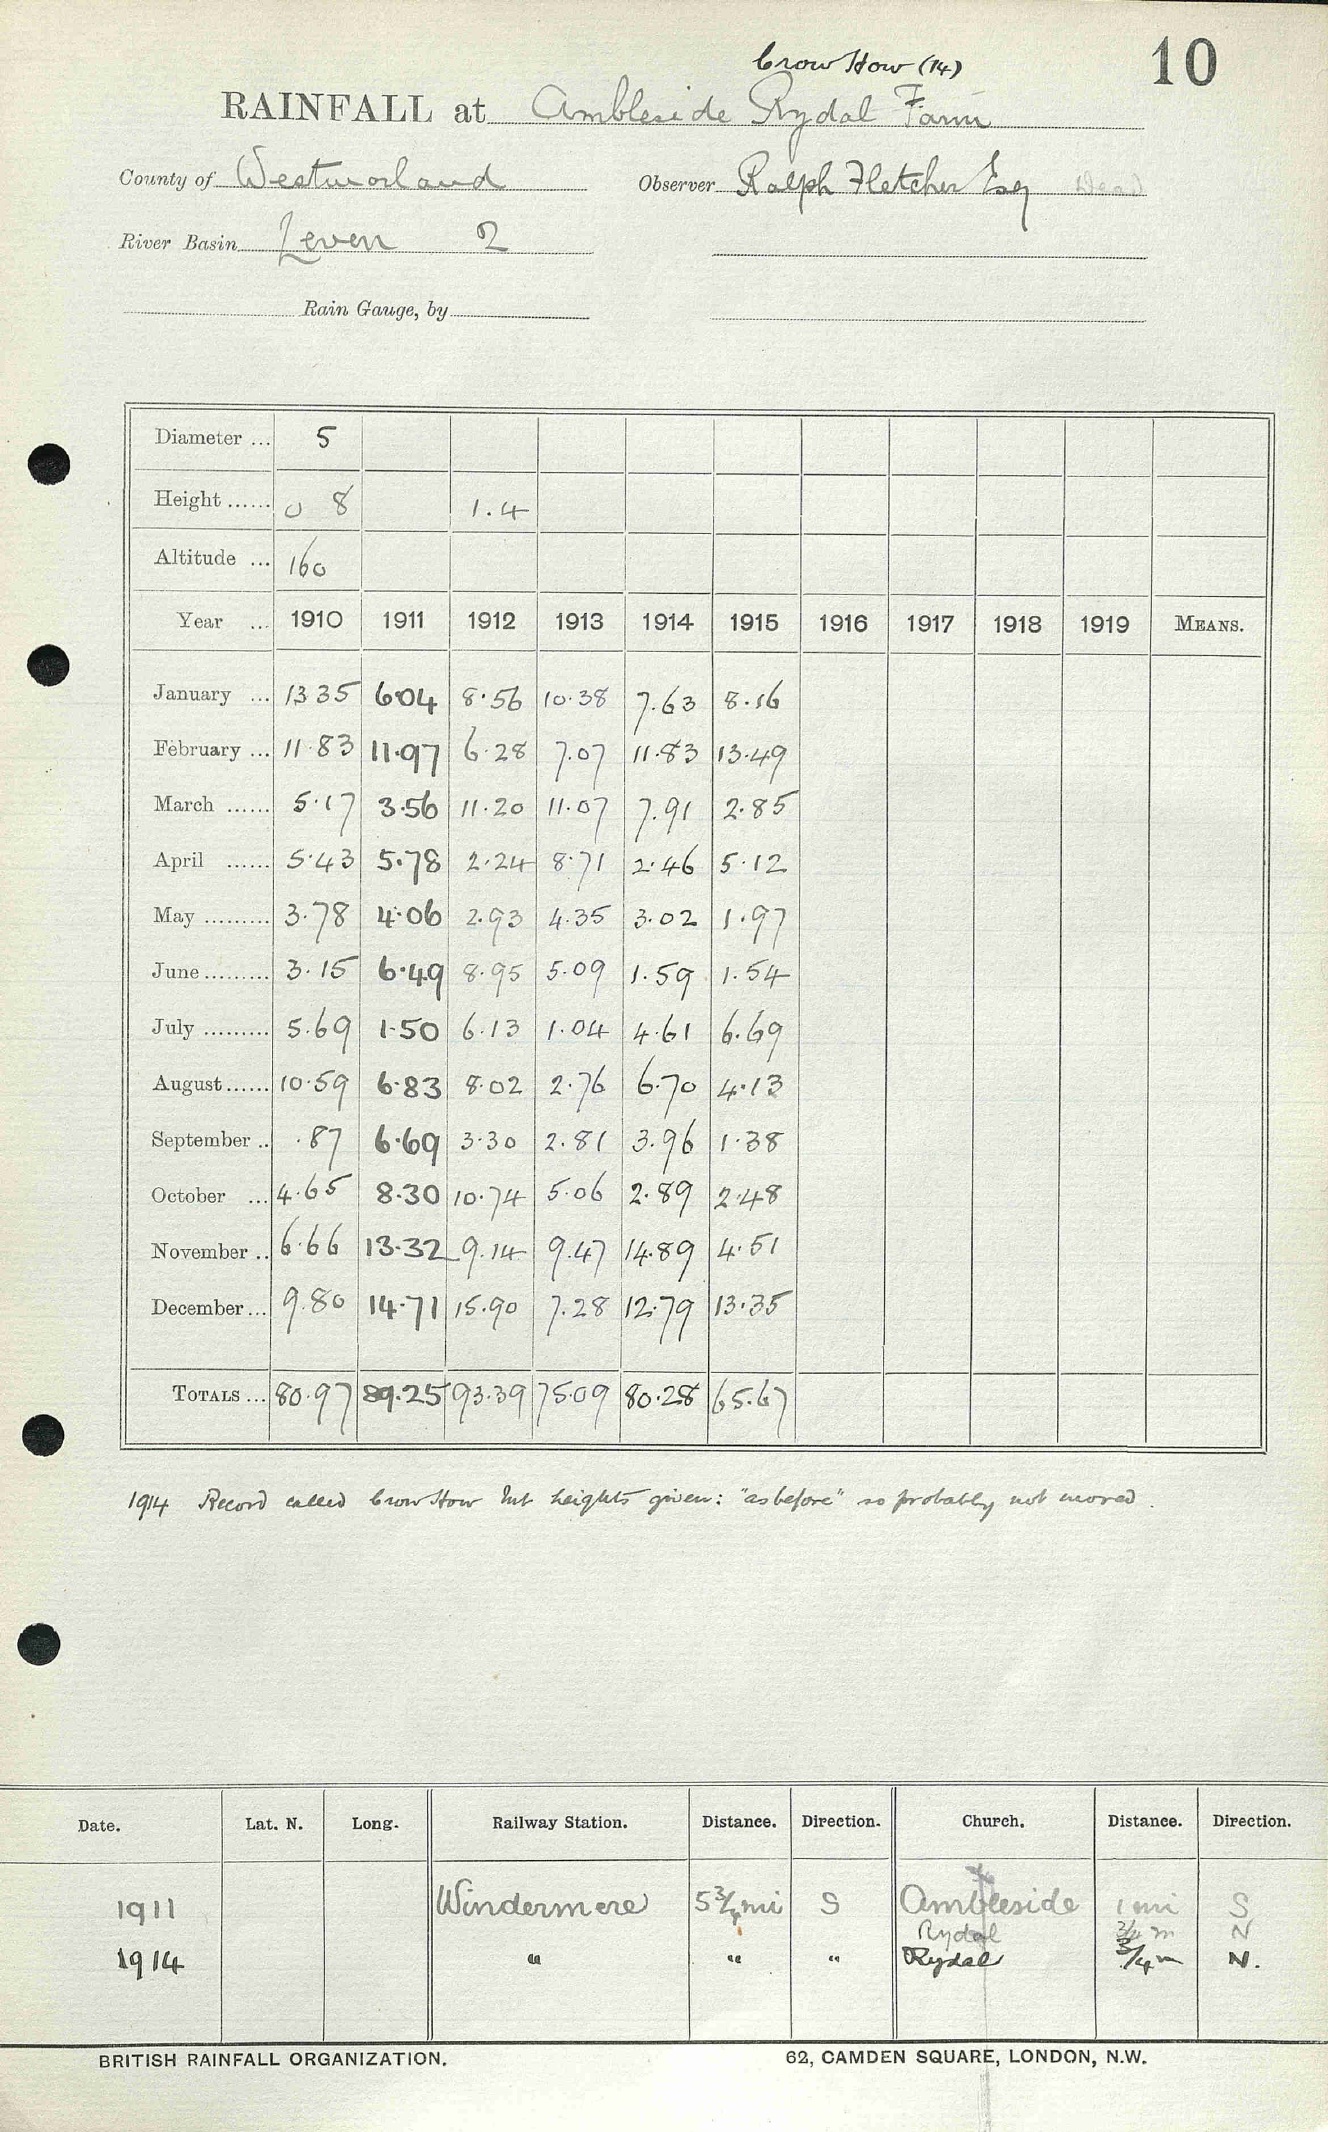 10
Crow How (14)
RAINFALL at Ambleside Rydal Farm
County of Westmorland Observer Ralph Fletcher Esq Dead
River Basin Leven 2
Rain Gauge, by
Diameter ... 5
Height ...... 0 8 1.4
Altitude ... 160
Year ... 1910 1911 1912 1913 1914 1915 1916 1917 1918 1919 MEANS.
January ... 13 35 6.04 8.56 10.38 7.63 8.16
February ... 11.83 11.97 6.28 7.07 11.83 13.49
March ...... 5.17 3.56 11.20 11.07 7.91 2.85
April ...... 5.43 5.78 2.24 8.71 2.46 5.12
May ......... 3.78 4.06 2.93 4.35 3.02 1.97
June ......... 3.15 6.49 8.95 5.09 1.59 1.54
July ......... 5.69 1.50 6.13 1.04 4.61 6.69
August ...... 10.59 6.83 8.02 2.76 6.70 4.13
September .. .87 6.69 3.30 2.81 3.96 1.38
October ... 4.65 8.30 10.74 5.06 2.89 2.48
November .. 6.66 13.32 9.14 9.47 14.89 4.51
December ... 9.80 14.71 15.90 7.28 12.79 13.35
TOTALS ... 80.97 89.25 93.39 75.09 80.28 65.67
1914 Record called Crow How but heights given: "as before" so probably not moved.
Date. Lat. N. Long. Railway Station. Distance. Direction. Church. Distance. Direction.
1911 Windermere 5 3/4 mi S Ambleside 1 mi S
Rydal 3/4 m N
1914 " " " Rydal 3/4 m N.
BRITISH RAINFALL ORGANIZATION. 62, CAMDEN SQUARE, LONDON, N.W.